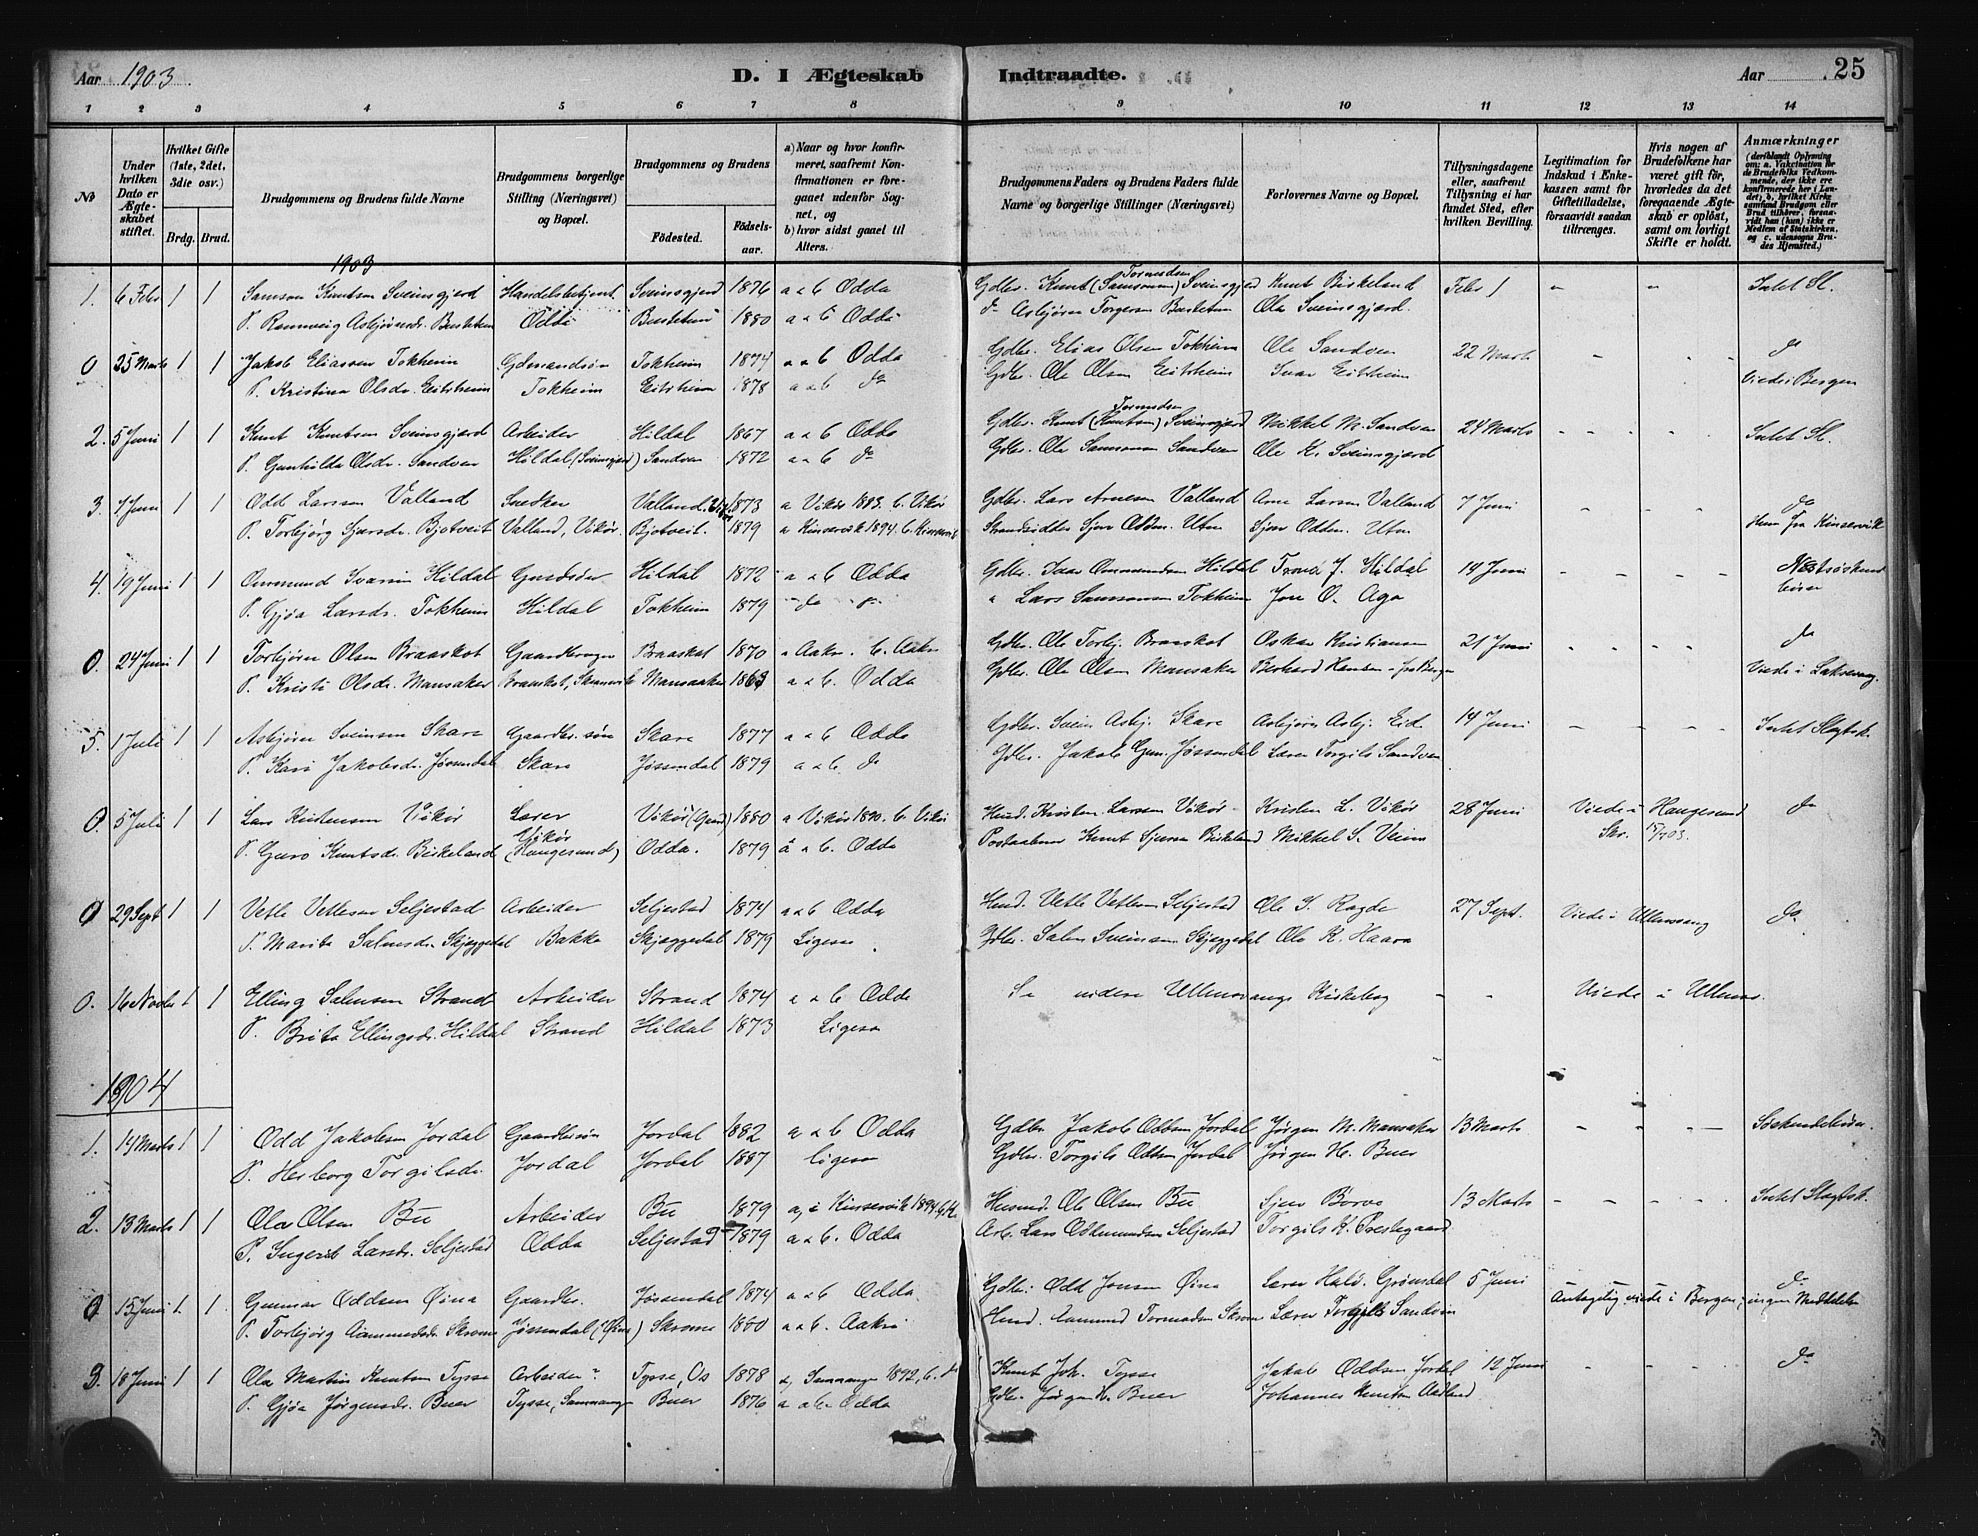 Aar 1903
D. I Ægteskab Indtraadte.
Aar 25
1 2 3 4 5 6 7 8 9 10 11 12 13 14
No
Under hvilken Dato er Ægteskabet stiftet.
Hvilket Gifte (1ste, 2det, 3die osv.)
Brdg. Brud.
Brudgommens og Brudens fulde Navne
Brudgommens borgerlige Stilling (Næringsvei) og Bopæl.
Brudgommens og Brudens
Fødested. Fødselsaar.
a) Naar og hvor konfirmeret, saafremt Konfirmationen er foregaaet udenfor Sognet, og
b) hvor sidst gaaet til Alters.
Brudgommens Faders og Brudens Faders fulde Navne og borgerlige Stillinger (Næringsvei)
Forlovernes Navne og Bopæl.
Tillysningsdagene eller, saafremt Tillysning ei har fundet Sted, efter hvilken Bevilling.
Legitimation for Indskud i Enkekassen samt for Giftetilladelse, forsaavidt saadan tiltrænges.
Hvis nogen af Brudefolkene har været gift før, hvorledes da det foregaaende Ægteskab er opløst, samt om lovligt Skifte er holdt.
Anmærkninger
(deriblandt Oplysning om: a. Vakcination for de Brudefolks Vedkommende, der ikke ere konfirmerede her i Landet; b. hvilket Kirkesamfund Brudgom eller Brud tilhører, forsaavidt han (hun) ikke er Medlem af Statskirken, og c. udensogns Brudes Hjemsted.)
1903
1. 6 Febr 1 1 Samson Knutsen Sveinsgjerd Handelsbetjent Sveinsgjerd 1876 a & b Odda Gdbr. Knut (Samsonsen) Tormodsen Sveinsgjerd Knut Birkeland Febr 1 - - Intet Sl.
P. Rannveig Asbjørnsdr. Busteten Odda Busteten 1880 a & b Odda do Asbjørn Torgersen Busteten Ole Sveinsgjerd.
0 25 Marts 1 1 Jakob Eliassen Tokheim Gdmandssøn Tokheim 1874 a & b Odda Gdbr. Elias Olsen Tokheim Ole Sandven 22 Marts - - - do
P. Kristina Olsdr. Eitrheim Tokheim Eitrheim 1878 a & b do Gdbr. Ole Olsen Eitrheim Ivar Eitrheim Viede i Bergen
2. 5 Juni 1 1 Knut Knutsen Sveinsgjerd Arbeider Hildal 1867 a & b Odda Gdbr. Knut (Knutsen) Tormodsen Sveinsgjerd Mikkel M. Sandven 24 Marts - - - - Intet Sl.
P. Gunhilda Olsdr. Sandven Hildal (Sveinsgjerd) Sandven 1872 a & b do Gdbr. Ole Samsonsen Sandven Ole K. Sveinsgjerd
3. 7 Juni 1 1 Odd Larsen Valland Snedker Valland 1873 a Vikør 1883. b. Vikør Gdbr. Lars Arnesen Valland Arne Larsen Valland 7 Juni - - - - do
P. Torbjørg Sjursdr. Bjotveit Valland, Vikør. Bjotveit. 1879 a Kinservik 1894. b. Kinservik Strandsidder Sjur Odden. Utne Sjur Odden. Utne Hun fra Kinservik
4. 19 Juni 1 1 Ommund Ivarsen Hildal Hildal 1872 a & b Odda Gdbr. Ivar Ommundsen Hildal J. Hildal 14 Juni - - - - Næstsøskendebørn
P. Gjøa Larsdr. Tokheim Hildal Tokheim 1879 do do " Lars Samsonsen Tokheim Jon O. Aga
0. 24 Juni 1 1 Torbjørn Olsen Braaskot Gaardbruger Braaskot 1870 a Aakre. b. Aakre Gdbr. Ole Torbj. Braaskot Oskar Kristiansen 21 Juni - - - - do
P. Kristi Olsdr. Mansaker Braaskot, Skaanevik Mansaaker 1863 a & b. Odda Gdbr. Ole Olsen Mansaker Berhard Hansen fra Bergen Viede i Laksevaag.
5. 1 Juli 1 1 Asbjørn Sveinsen Skare Gaardbr. søn Skare 1877 a & b Odda Gdbr. Svein Asbj. Skare Asbjørn Asbj. Eid. 14 Juni - - - - Intet Slegtsk.
P. Kari Jakobsdr. Jøssendal Skare Jøssendal 1879 a & b. do Gdbr. Jakob Gun. Jøssendal Lærer Torgils Sandven
0. 5 Juli 1 1 Lars Kristensen Vikør Lærer Vikør 1880 a Vikør 1890. b. Vikør Husd. Kristen Larsen Vikør Kristen L. Vikør 28 Juni Viede i Haugesund do
P. Guro Knutsdr. Birkeland Vikør (Haugesund) Odda. 1879 a & b. Odda Postaabner Knut Sjursen Birkeland Mikkel S. Veim Skr. 03.
0 29 Sept 1 1 Vetle Vetlesen Seljestad Arbeider Seljestad 1874 a & b Odda Husd. Vetle Vetlesen Seljestad Ole S. Ragde 27 Sept. Viede i Ullensvang do
P. Marita Salmsdr. Skjæggedal Bakke Skjæggedal 1879 Ligesaa Gdbr. Salm Sveinsen Skjæggedal Ole K. Haara
0. 16 Novbr 1 1 Elling Salmsen Strand Arbeider Strand 1874 a & b Odda Se videre Ullensvangs Kirkebog - - Viede i Ullensv.
P. Brita Ellingsdr. Hildal Strand Hildal 1873 Ligesaa
1904
1. 14 Marts 1 1 Odd Jakobsen Jordal Gaardbrsøn Jordal 1882 a & b Odda Gdbr. Jakob Oddsen Jordal Jørgen M. Mansaker 13 Marts - - - - Søskendebørn.
P. Herborg Torgilsdr. Jordal Jordal 1887 Ligesaa Gdbr. Torgils Oddsen Jordal Jørgen H. Buer
2. 13 Marts 1 1 Ola Olsen Bu Arbeider Bu 1879 a, i Kinservik 1894 b, K. Husmd. Ole Olsen Bu Sjur Borve 13 Marts - - - - Intet Slegtsk.
P. Ingerid Larsdr. Seljestad Odda Seljestad 1879 a & b. Odda Arb. Lars Odmundsen Seljestad Torgils K. Prestegaard
0 15 Juni 1 1 Gunnar Oddsen Øina Gaardbr. Jøssendal 1874 a & b Odda Gdbr. Odd Jonsen Øina Lærer Hald. Grønsdal 5 Juni Antagelig viede i Bergen; ingen Meddelelse do
P. Torbjørg Aamundsdr. Skromme Jøssendal (Øina) Skromme 1880 a & b. Aakre Husd. Aamund Tormodsen Skromme Lærer Torgils Sandven
3. 18 Juni 1 1 Ola Martin Knutsen Tysse Arbeider Tysse, Os 1878 a, Samnanger 1892, b. do Knut Joh. Tysse Jakob Oddsen Jordal 12 Juni - - - do
P. Gjøa Jørgensdr. Buer Tysse, Samnanger Buer 1876 a & b Odda Gdbr. Jørgen H. Buer Johannes Knutsen Aadland